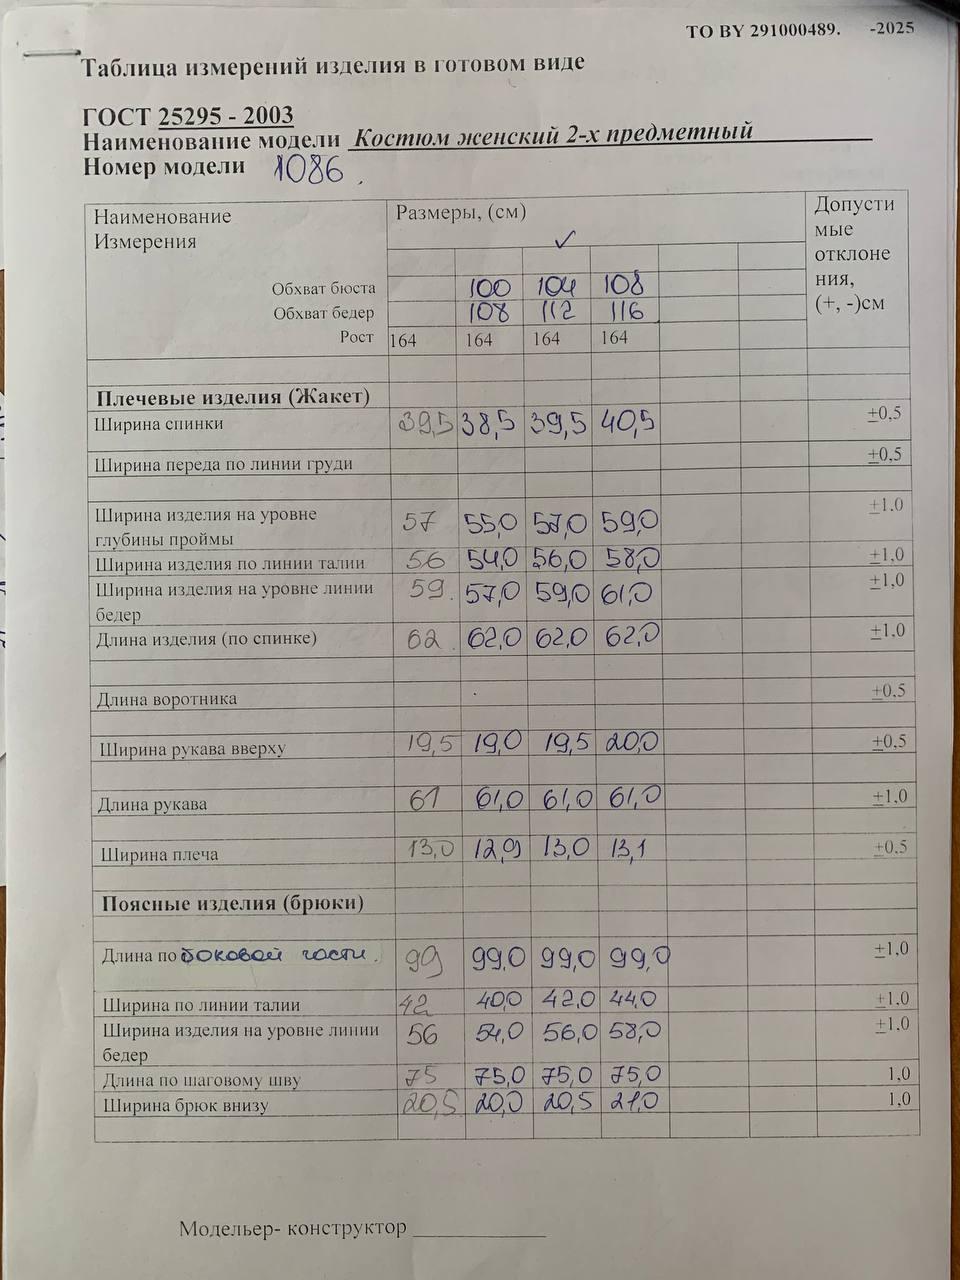 ТО BY 291000489. -2025
Таблица измерений изделия в готовом виде
ГОСТ 25295 - 2003
Наименование модели Костюм женский 2-х предметный
Номер модели 1086.
Наименование Измерения Размеры, (см) Допустимые отклонения, (+, -)см
✓
Обхват бюста 100 104 108
Обхват бедер 108 112 116
Рост 164 164 164 164
Плечевые изделия (Жакет)
Ширина спинки 39,5 38,5 39,5 40,5 ±0,5
Ширина переда по линии груди ±0,5
Ширина изделия на уровне глубины проймы 57 55,0 57,0 59,0 ±1,0
Ширина изделия по линии талии 56 54,0 56,0 58,0 ±1,0
Ширина изделия на уровне линии бедер 59. 57,0 59,0 61,0 ±1,0
Длина изделия (по спинке) 62. 62,0 62,0 62,0 ±1,0
Длина воротника ±0,5
Ширина рукава вверху 19,5 19,0 19,5 20,0 ±0,5
Длина рукава 61 61,0 61,0 61,0 ±1,0
Ширина плеча 13,0 12,9 13,0 13,1 ±0,5
Поясные изделия (брюки)
Длина по боковой части. 99 99,0 99,0 99,0 ±1,0
Ширина по линии талии 42 40,0 42,0 44,0 ±1,0
Ширина изделия на уровне линии бедер 56 54,0 56,0 58,0 ±1,0
Длина по шаговому шву 75 75,0 75,0 75,0 1,0
Ширина брюк внизу 20,5 20,0 20,5 21,0 1,0
Модельер- конструктор